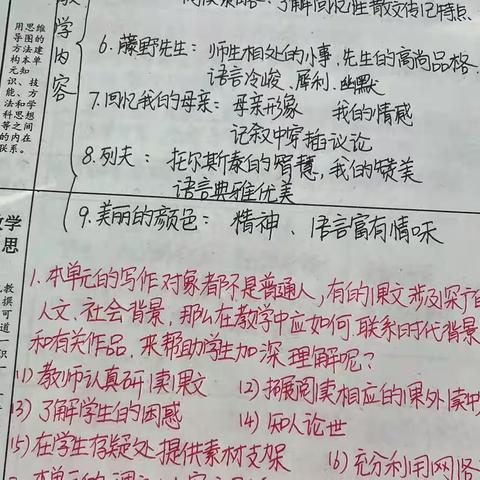 用思维
导图的
方法建
构本单
元知
识、技
能、方
法和学
科思想
等之间
的内在
联系。
学
内
容
6.藤野先生：师生相处的小事、先生的高尚品格、
语言冷峻、犀利、幽默
7.回忆我的母亲：母亲形象 我的情感
记叙中穿插议论
8.列夫：托尔斯泰的智慧，我的赞美
语言典雅优美
9.美丽的颜色：精神、语言富有情味
学
思
教
撰
可
道
1.本单元的写作对象都不是普通人，有的课文涉及深广的
人文、社会背景，那么在教学中应如何联系时代背景
和有关作品，来帮助学生加深理解呢？
(1)教师认真研读课文 (2)拓展阅读相应的课外读
(3)了解学生的困惑 (4)知人论世
(5)在学生存疑处提供素材支架 (6)充分利用网络